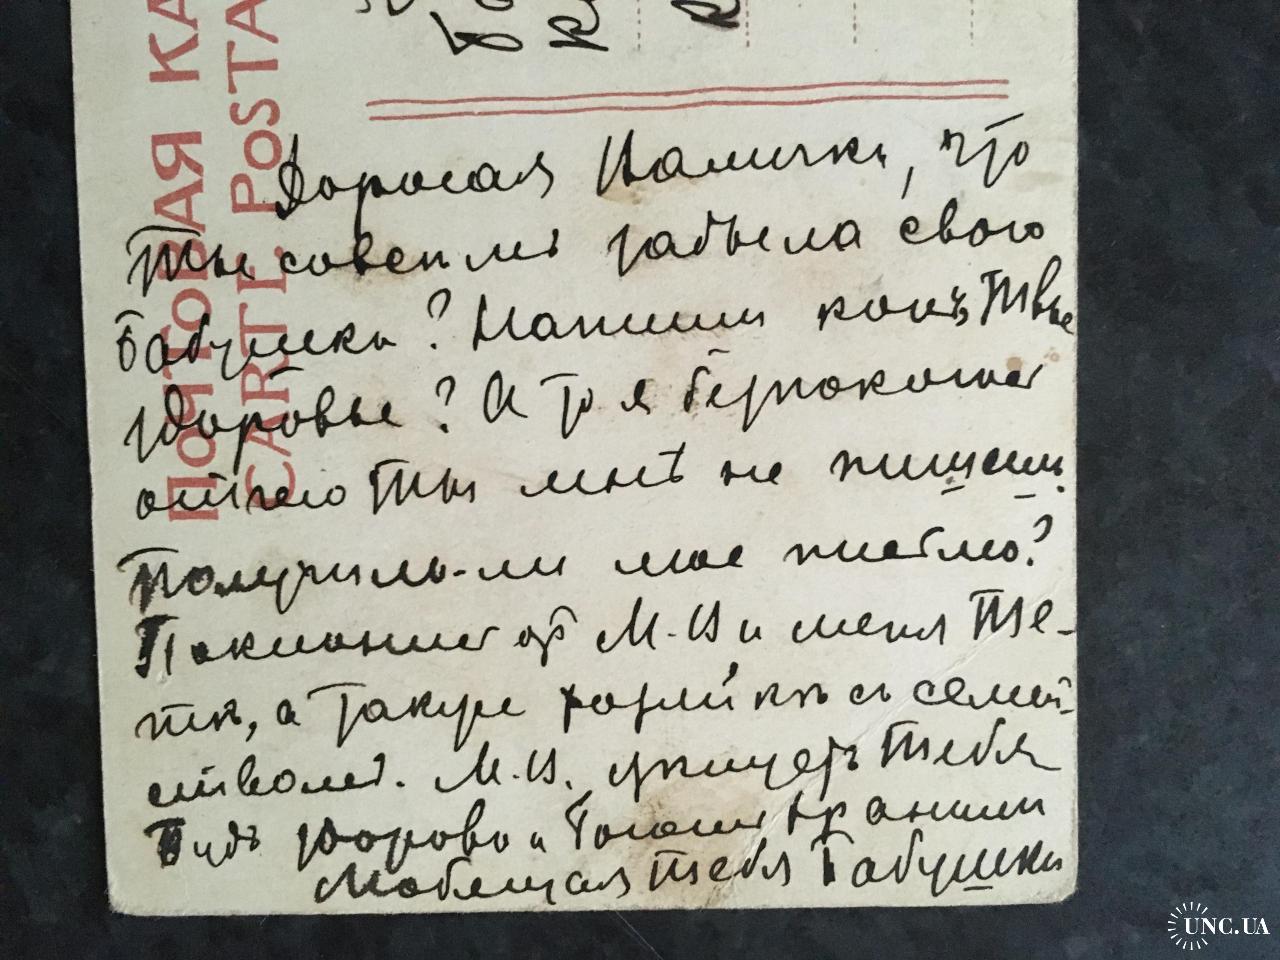 ПОЧТОВАЯ КА
CARTE POSTA
Дорогая Налички, что
Ты совсемъ забыла свою
Бабушку? Напиши какъ Твое
здоровье? А то я безпокоюсь
отчего Ты мнѣ не пишешь.
Получила-ли мое письмо?
Поклонись отъ М.И и меня Те-
тѣ, а также съ семей-
ствомъ. М.И. цѣлуетъ Тебя
Будь здорова и Богомъ хранима
Любящая Тебя Бабушка
UNC.UA